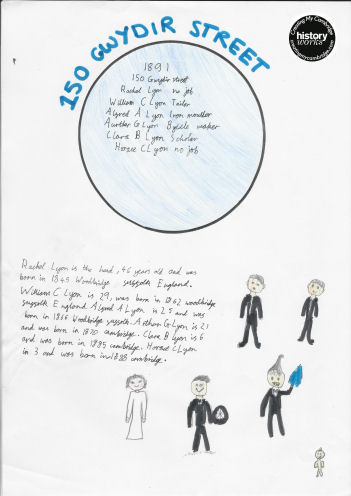 Creating My Cambridge
history
works
creatingmycambridge.com
150 GWYDIR STREET
1891
150 Gwydir street
Rachel Lyon no job
William C Lyon Tailer
Alfred A Lyon Iron moulder
Aurther G Lyon Bycicle maker
Clara B Lyon Scholar
Horace C Lyon no job
Rachel Lyon is the head, 46 years old and was
born in 1845 Woodbridge suffolk England.
William C Lyon is 29, was born in 1862 woodbridge
suffolk England. Alfred A Lyon is 25 and was
born in 1866 Woodbridge suffolk. Arthur G Lyon is 21
and was born in 1870 cambridge. Clara B Lyon is 6
and was born in 1885 cambridge. Horace C Lyon
in 3 and was born in 1888 cambridge.